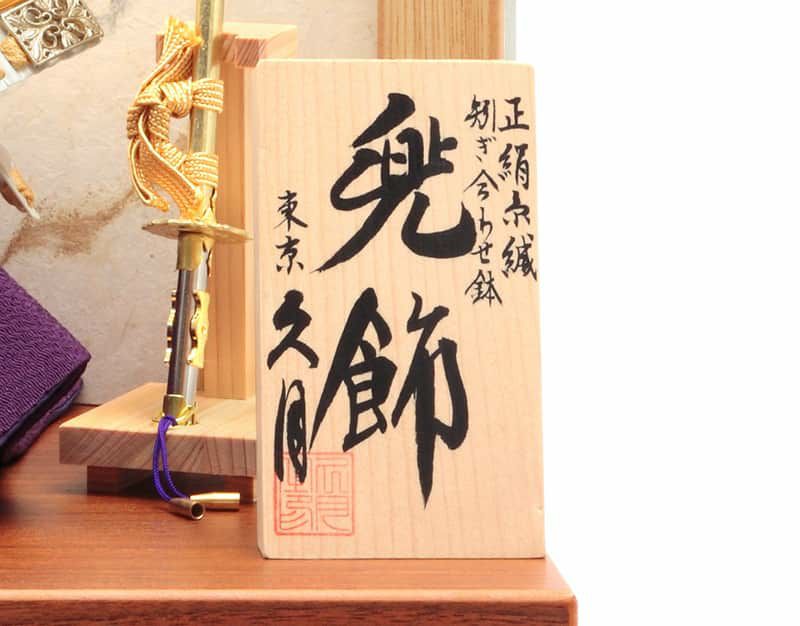 正絹糸縅
矧ぎ合わせ鉢
兜飾
東京
久月